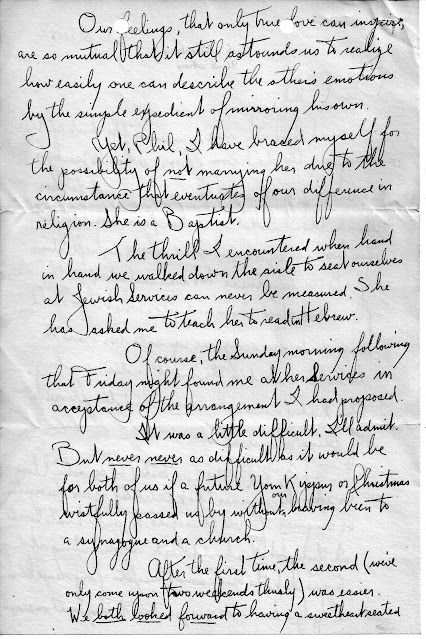 Our feelings, that only true love can inspire,
are so mutual that it still astounds us to realize
how easily one can describe the other's emotions
by the simple expedient of mirroring his own.
Yet, Phil, I have braced myself for
the possibility of not marrying her due to the
circumstance that eventuates of our difference in
religion. She is a Baptist.
The thrill I encountered when hand
in hand we walked down the aisle to seat ourselves
at Jewish Services can never be measured. She
has asked me to teach her to read in Hebrew.
Of course, the Sunday morning following
that Friday night found me at her Services in
acceptance of the arrangement I had proposed.
It was a little difficult, I'll admit.
But never never as difficult as it would be
for both of us if a future Yom Kippur or Christmas
wistfully passed us by without our having been to
a synagogue and a church.
After the first time, the second (we've
only come upon two weekends thusly) was easier.
We both looked forward to having a sweetheart seated